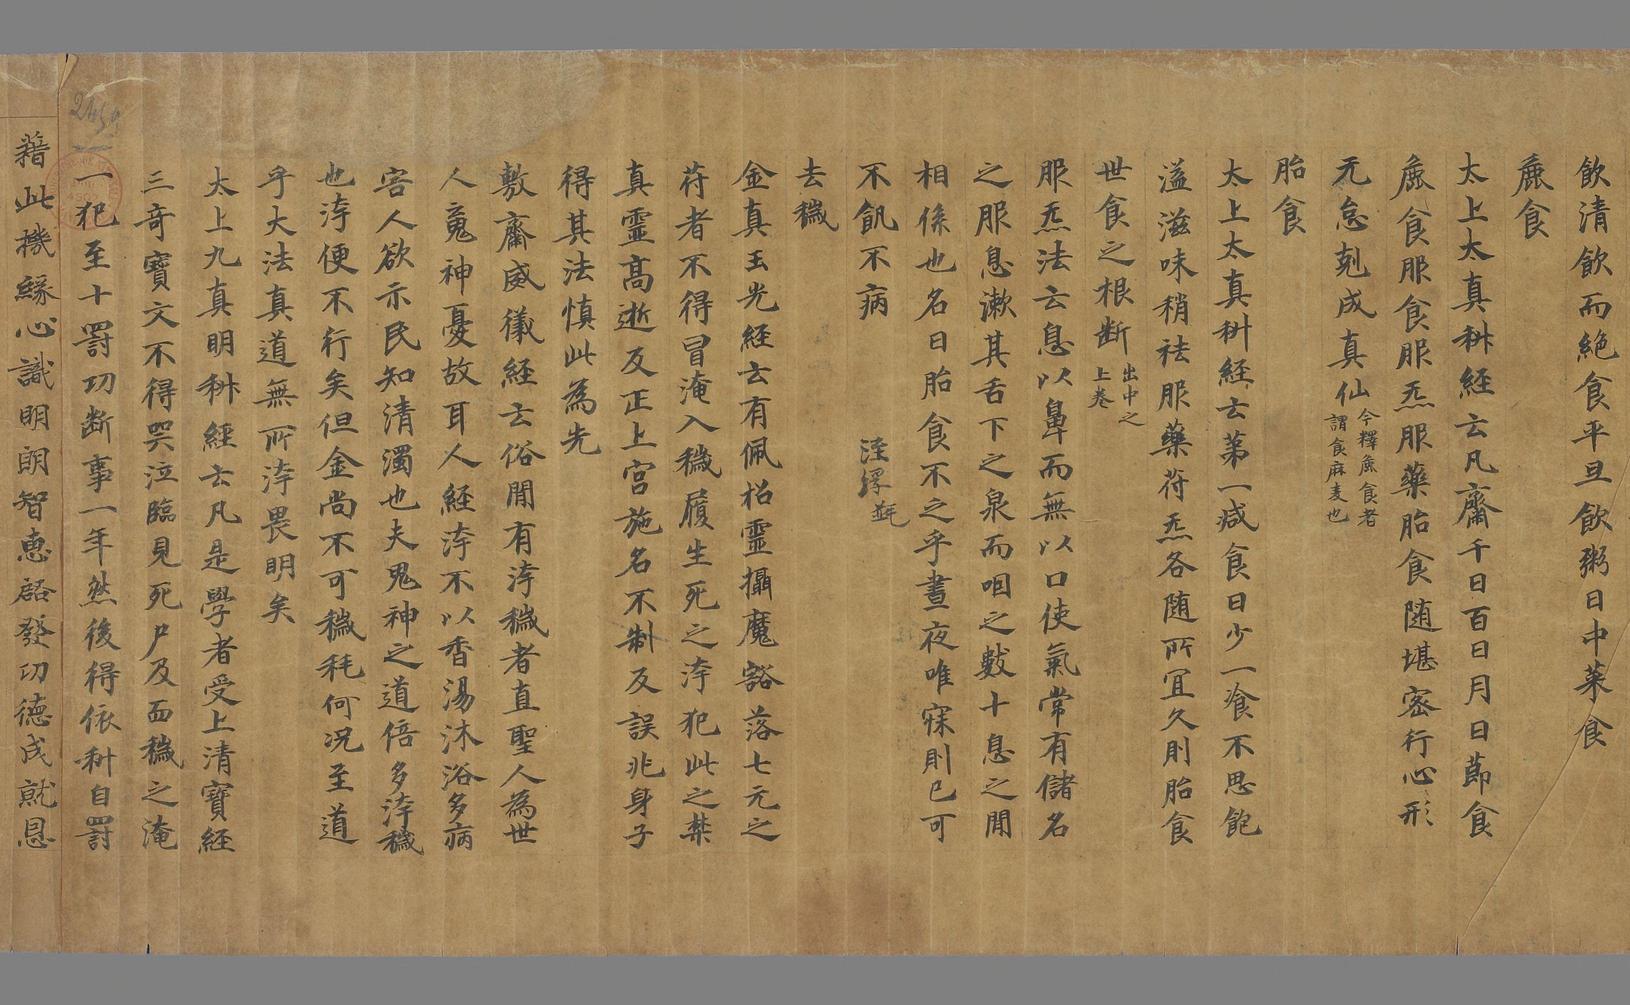 飲清飲而絕食平旦飲粥日中菜食
麁食
太上太真科經云凡齋千日百日月日節食
麁食服食服炁服藥胎食随堪密行心形
无怠剋成真仙今釋麁食者謂食麻麦也
胎食
太上太真科經云苐一減食日少一飡不思飽
溢滋味稍祛服藥苻炁各随所宜久則胎食
世食之根断出中之上卷
服炁法云息以鼻而無以口使氣常有儲名
之服息漱其舌下之泉而咽之數十息之間
相係也名曰胎食不之乎晝夜唯寐則已可
不飢不病
去穢
金真玉光經云有佩柖靈攝魔豁落七元之
苻者不得冐淹入穢履生死之洿犯此之禁
真靈髙逝反正上宫施名不制反誤兆身子
得其法慎此為先
敷齋威儀經云俗間有洿穢者直聖人為世
人鬼神憂故耳人經洿不以香湯沐浴多病
害人欲示民知清濁也夫鬼神之道倍多洿穢
也洿便不行矣但金尚不可穢秏何况至道
乎大法真道無所洿畏明矣
太上九真明科經云凡是學者受上清寶經
三奇寶文不得哭泣臨見死尸及面穢之淹
一犯至十罸切断事一年然後得依科自罸
藉此機緣心識明朗智惠啓發切德成就恩
2459